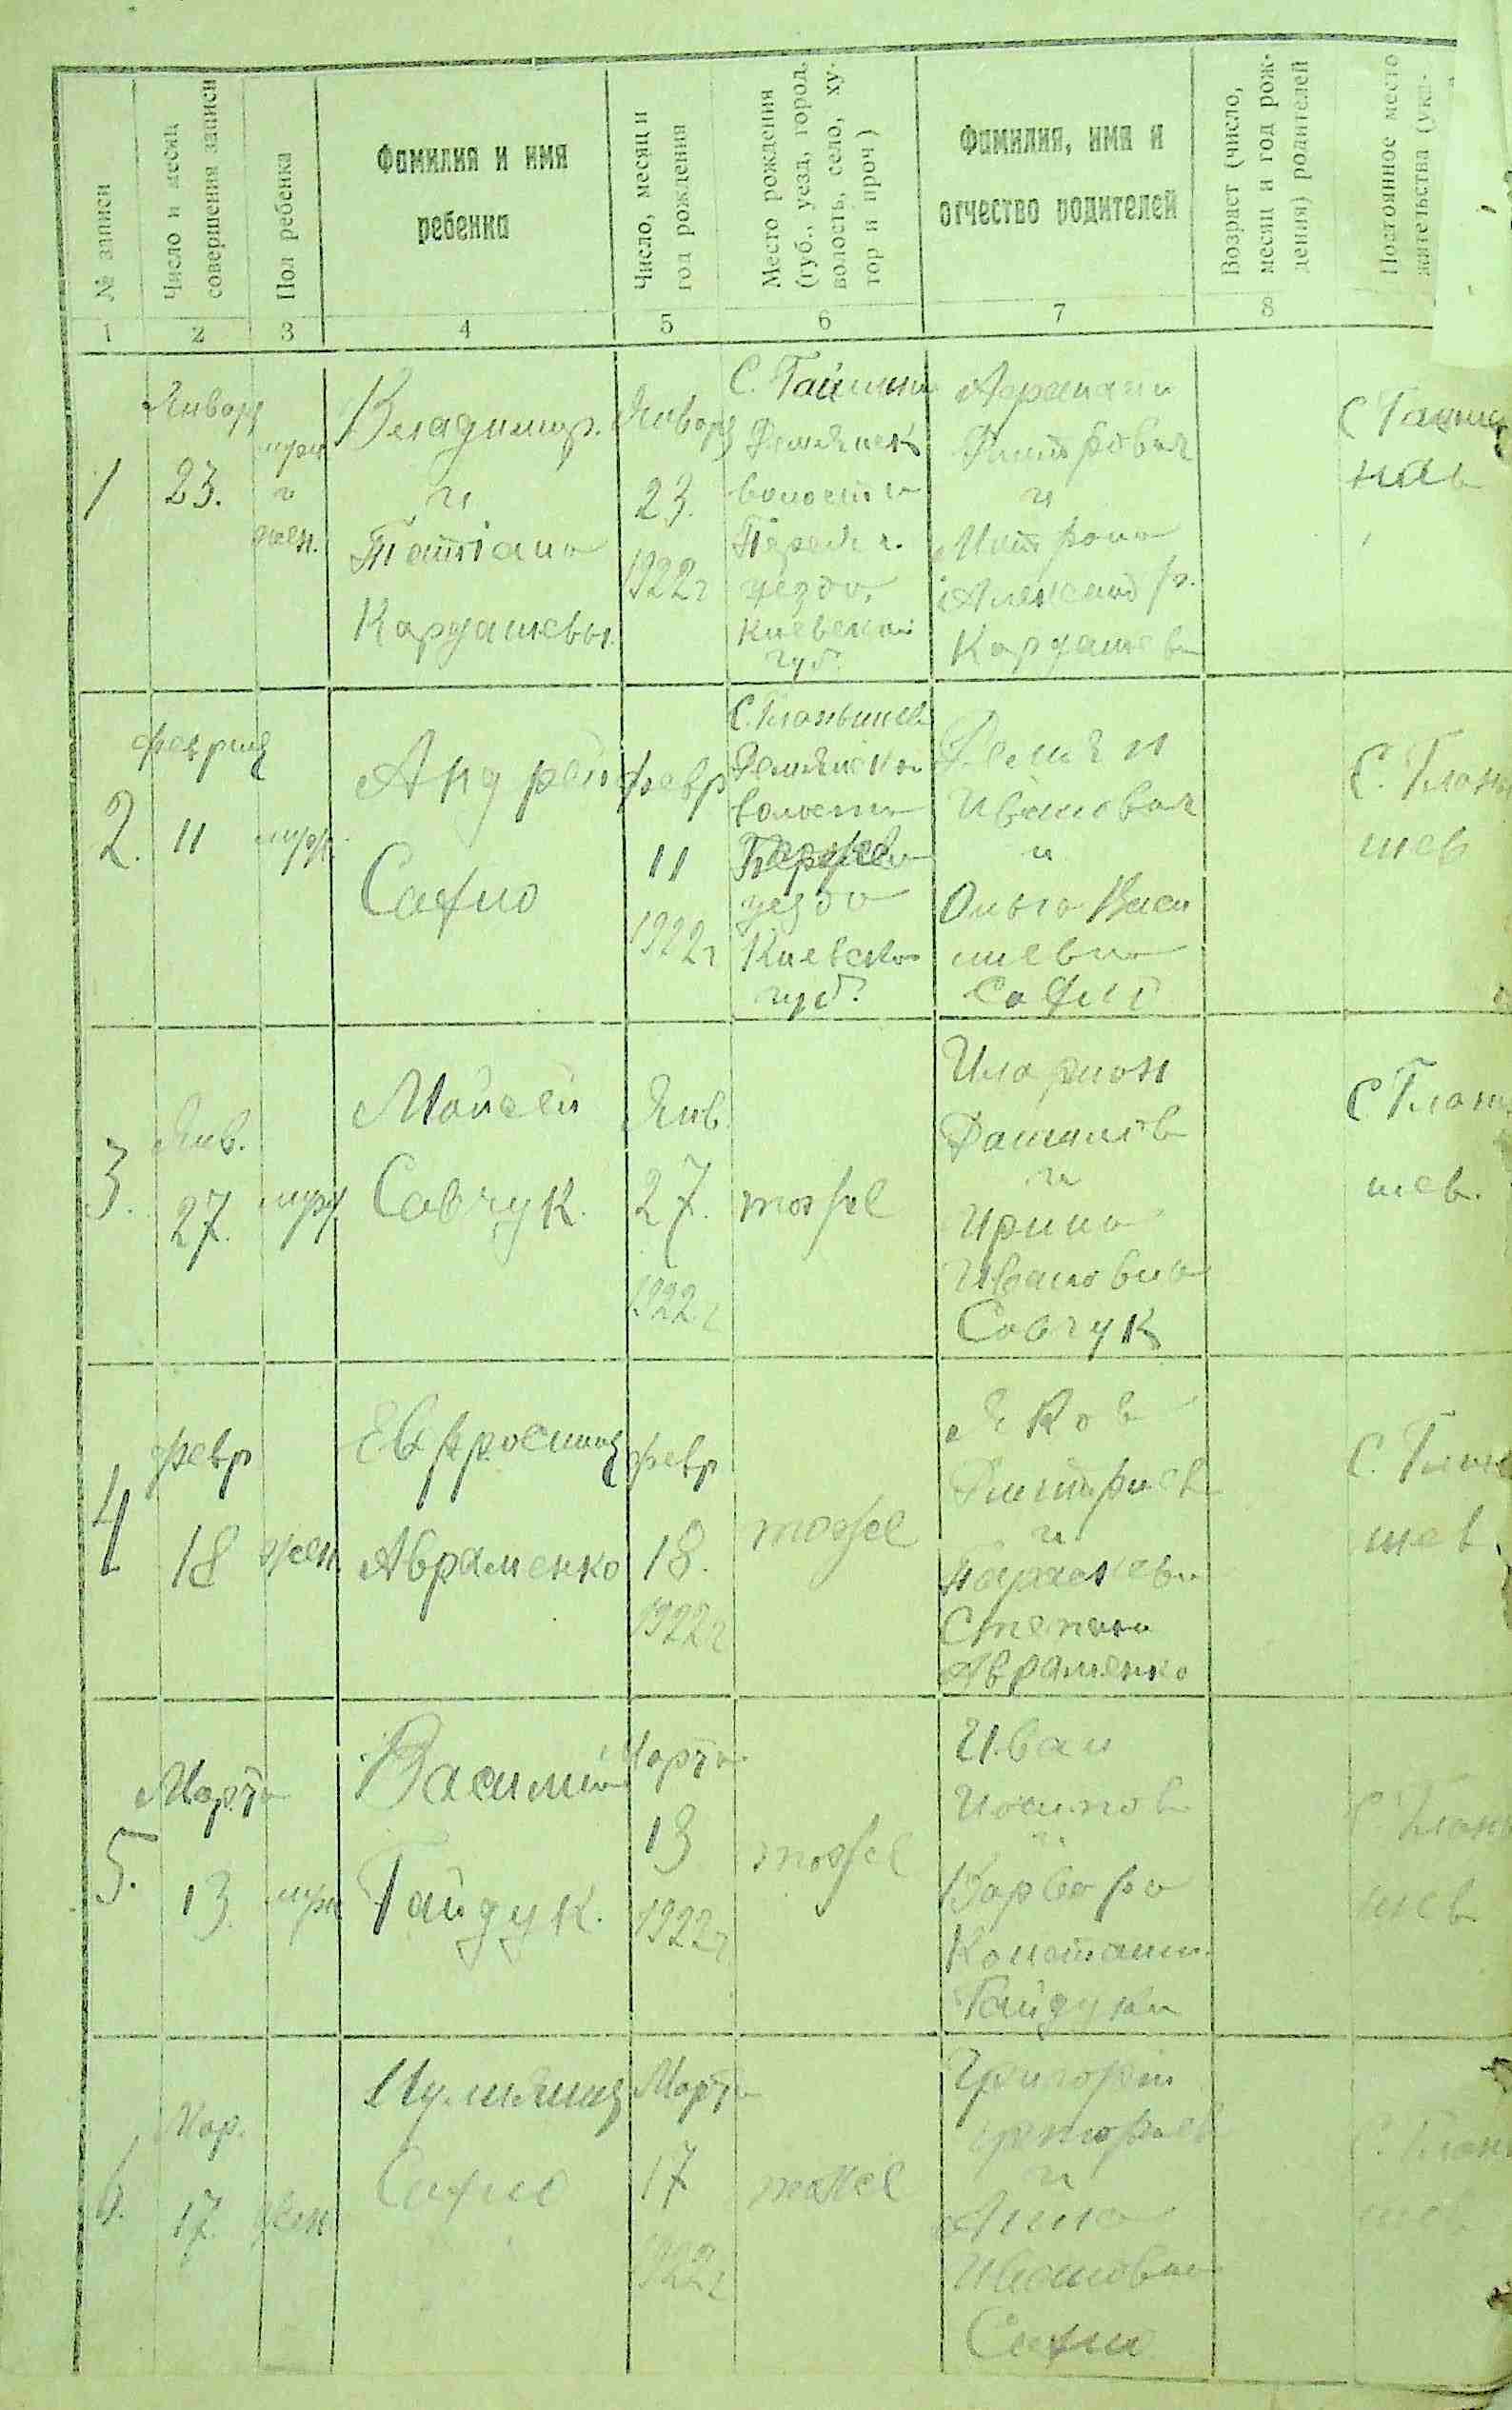 № записи
Число и месяц
совершения записи
Пол ребенка
Фамилия и имя
ребенка
Число, месяц и
год рождения
Место рождения
(губ., уезд, город,
волость, село, ху-
тор и проч)
Фамилия, имя и
отчество родителей
Возраст (число,
месяц и год рож-
дения) родителей
Постоянное место
жительства (ука-
1 2 3 4 5 6 7 8
1
Января
23.
муж
и
жен.
Владимир.
и
Татіана
Кардашевы.
Января
23.
1922 г
С.
волости
уезда,
Киевской
губ.
Дмитрович
и
Александр.
Кардашев
С
2.
февраля
11
муж.
Андрей
Сафио
февр
11
1922 г
С.
волости
уезда
Киевской
губ.
Иванович
и
Ольга Васи
лиевна
Сафио
С.
шев
3.
Янв.
27.
муж
Мойсей
Савчук.
Янв.
27.
1922 г
тоже
Иларион
и
Ирина
Ивановна
Савчук
С
шев.
4
февр
18
жен.
Евфросиния
Авраменко
февр
18.
1922 г
тоже
Яков
Дмитриев
и
Параскева
Степан
Авраменко
С.
шев
5.
Марта
13
муж
Василий
Гайдук.
Марта
13
1922 г
тоже
Иван
Иосипов
и
Варвара
Констант.
Гайдуки
С.
шев
6.
Мар.
17.
жен
Сафио
Марта
17
1922 г
тоже
Григорій
и
Анна
Ивановна
Сафио
С.
шев